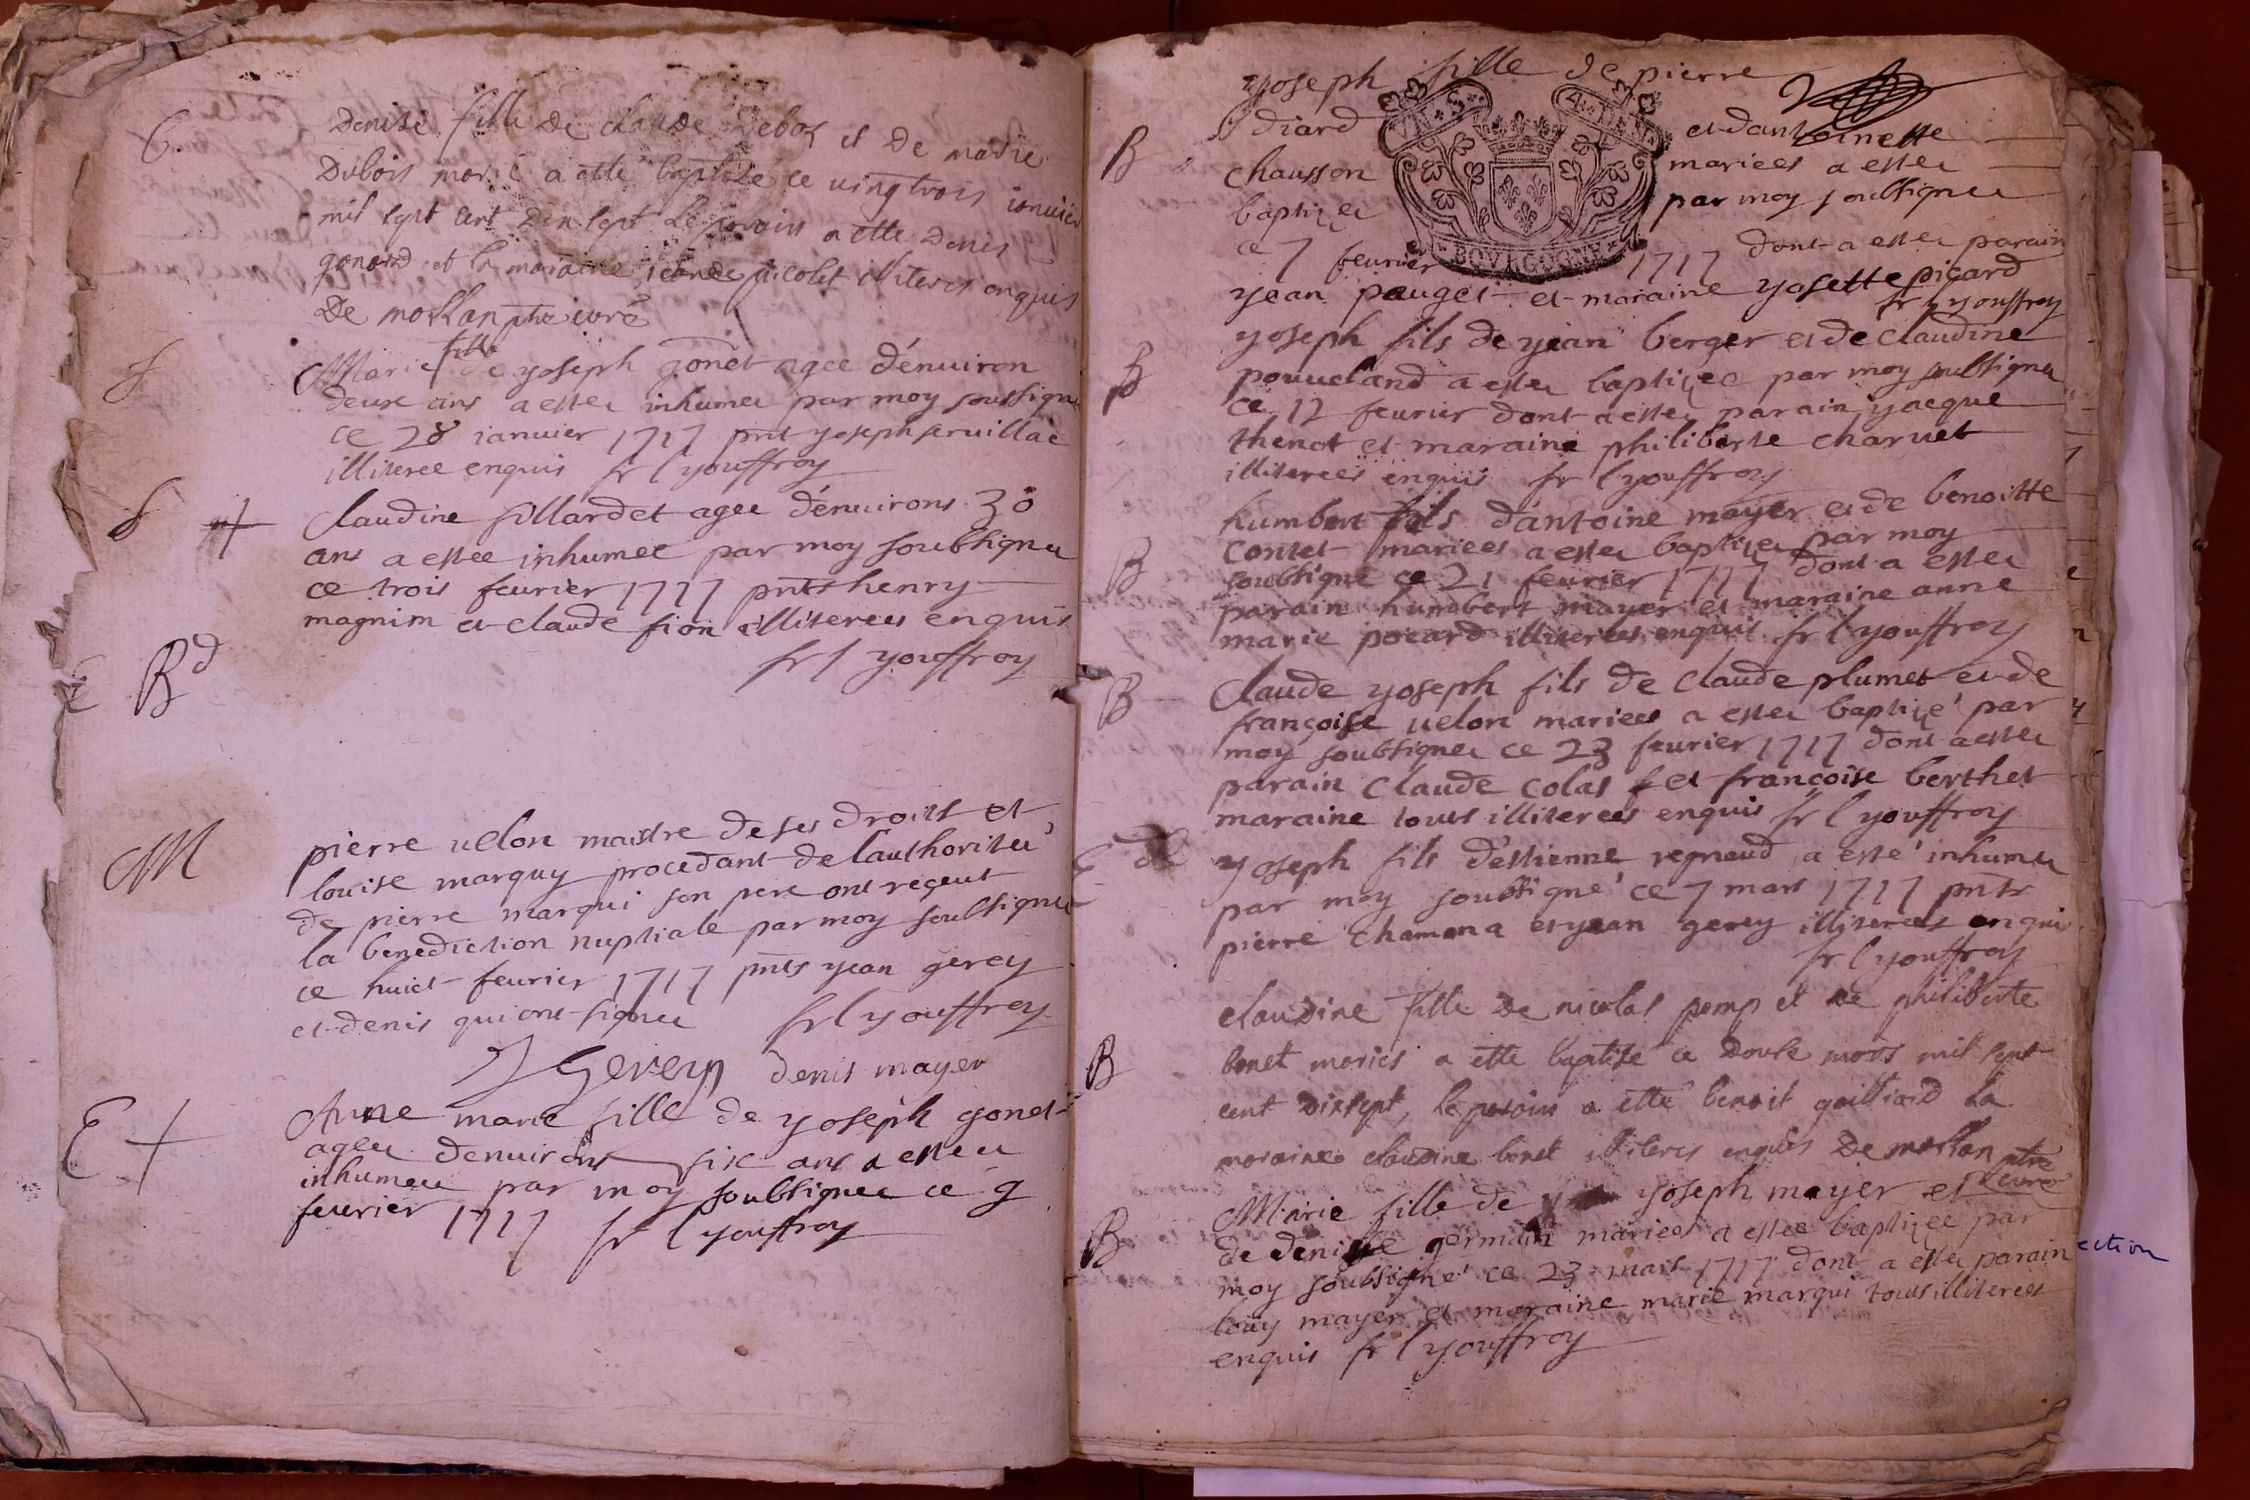 B.
Denise fille de claude Debos et De marie
Dubois mariés a etté baptisée ce vingtrois ianvier
mil sept cent dix sept Le parain a etté Denis
gonard et la maraine nicolet illiteres enquis
De morlan ptre curé
S
Marie fille de yoseph gonet agee d'enuiron
deux ans a estee inhumee par moy soussigne
ce 28 ianuier 1717 pnt yoseph
illiteree enquis fr l youffroy
S
Claudine fillardet agee d'enuirons 30
ans a estee inhumee par moy soubsignee
ce trois feurier 1717 pnts henry
magnim et claude fion illiterees enquis
fr l youffroy
E Bd
M
pierre uelon maistre de ses droits et
louise marquy procedant de lauthoritee
de pierre marqui son pere ont reçeut
la benediction nuptiale par moy soubsignee
ce huict feurier 1717 pnts yean gerey
et denis qui ont signee fr l youffroy
J Gerey denis mayer
E
Anne marie fille de yoseph gonet
agee denuirons six ans a estee
inhumee par moy soubsignee ce 9
feurier 1717 fr l youffroy
yoseph fille de pierre
B
diard et dantoinette
chausson mariees a estee
baptizee par moy soubsignee
ce 7 feurier 1717 dont a estee parain
yean pauget et maraine yosette picard
fr l youffroy
VN S. 4. DEN
BOVRGOGNE
B
yoseph fils de yean berger et de claudine
pouueland a estee baptizee par moy soubsignee
ce 12 feurier dont a estee parain yacque
thenot et maraine philiberte charuet
illiterees enquis fr l youffroy
B
humbert fils d'antoine mayer et de benoitte
contet mariees a estee baptizee par moy
soubsigne ce 21 feurier 1717 dont a estee
parain humbert mayer et maraine anne
marie pocard illiterees enquis fr l youffroy
B
Claude yoseph fils de claude plumet et de
françoise uelon mariees a estee baptizé par
moy soubsignee ce 23 feurier 1717 dont a estee
parain claude colas et françoise berthet
maraine touts illiterees enquis fr l youffroy
E
yoseph fils d'estienne regnaud a esté inhumee
par moy soubsigné ce 7 mars 1717 pnts
pierre chamona et yean gerey illiterees enquis
fr l youffroy
B
claudine fille de nicolas pomp et de philiberte
bonet mariés a etté baptisée ce douze mars mil sept
cent dixsept, le parain a etté benoit gailliard La
maraine claudine bonet illiteres enquis De morlan ptre
curé
B
Marie fille de yoseph mayer et
de denisse germain mariees a estee baptizee par
moy soubsigné ce 23 mars 1717 dont a estee parain
louy mayer et maraine marie marqui touts illiterees
enquis fr l youffroy
ection